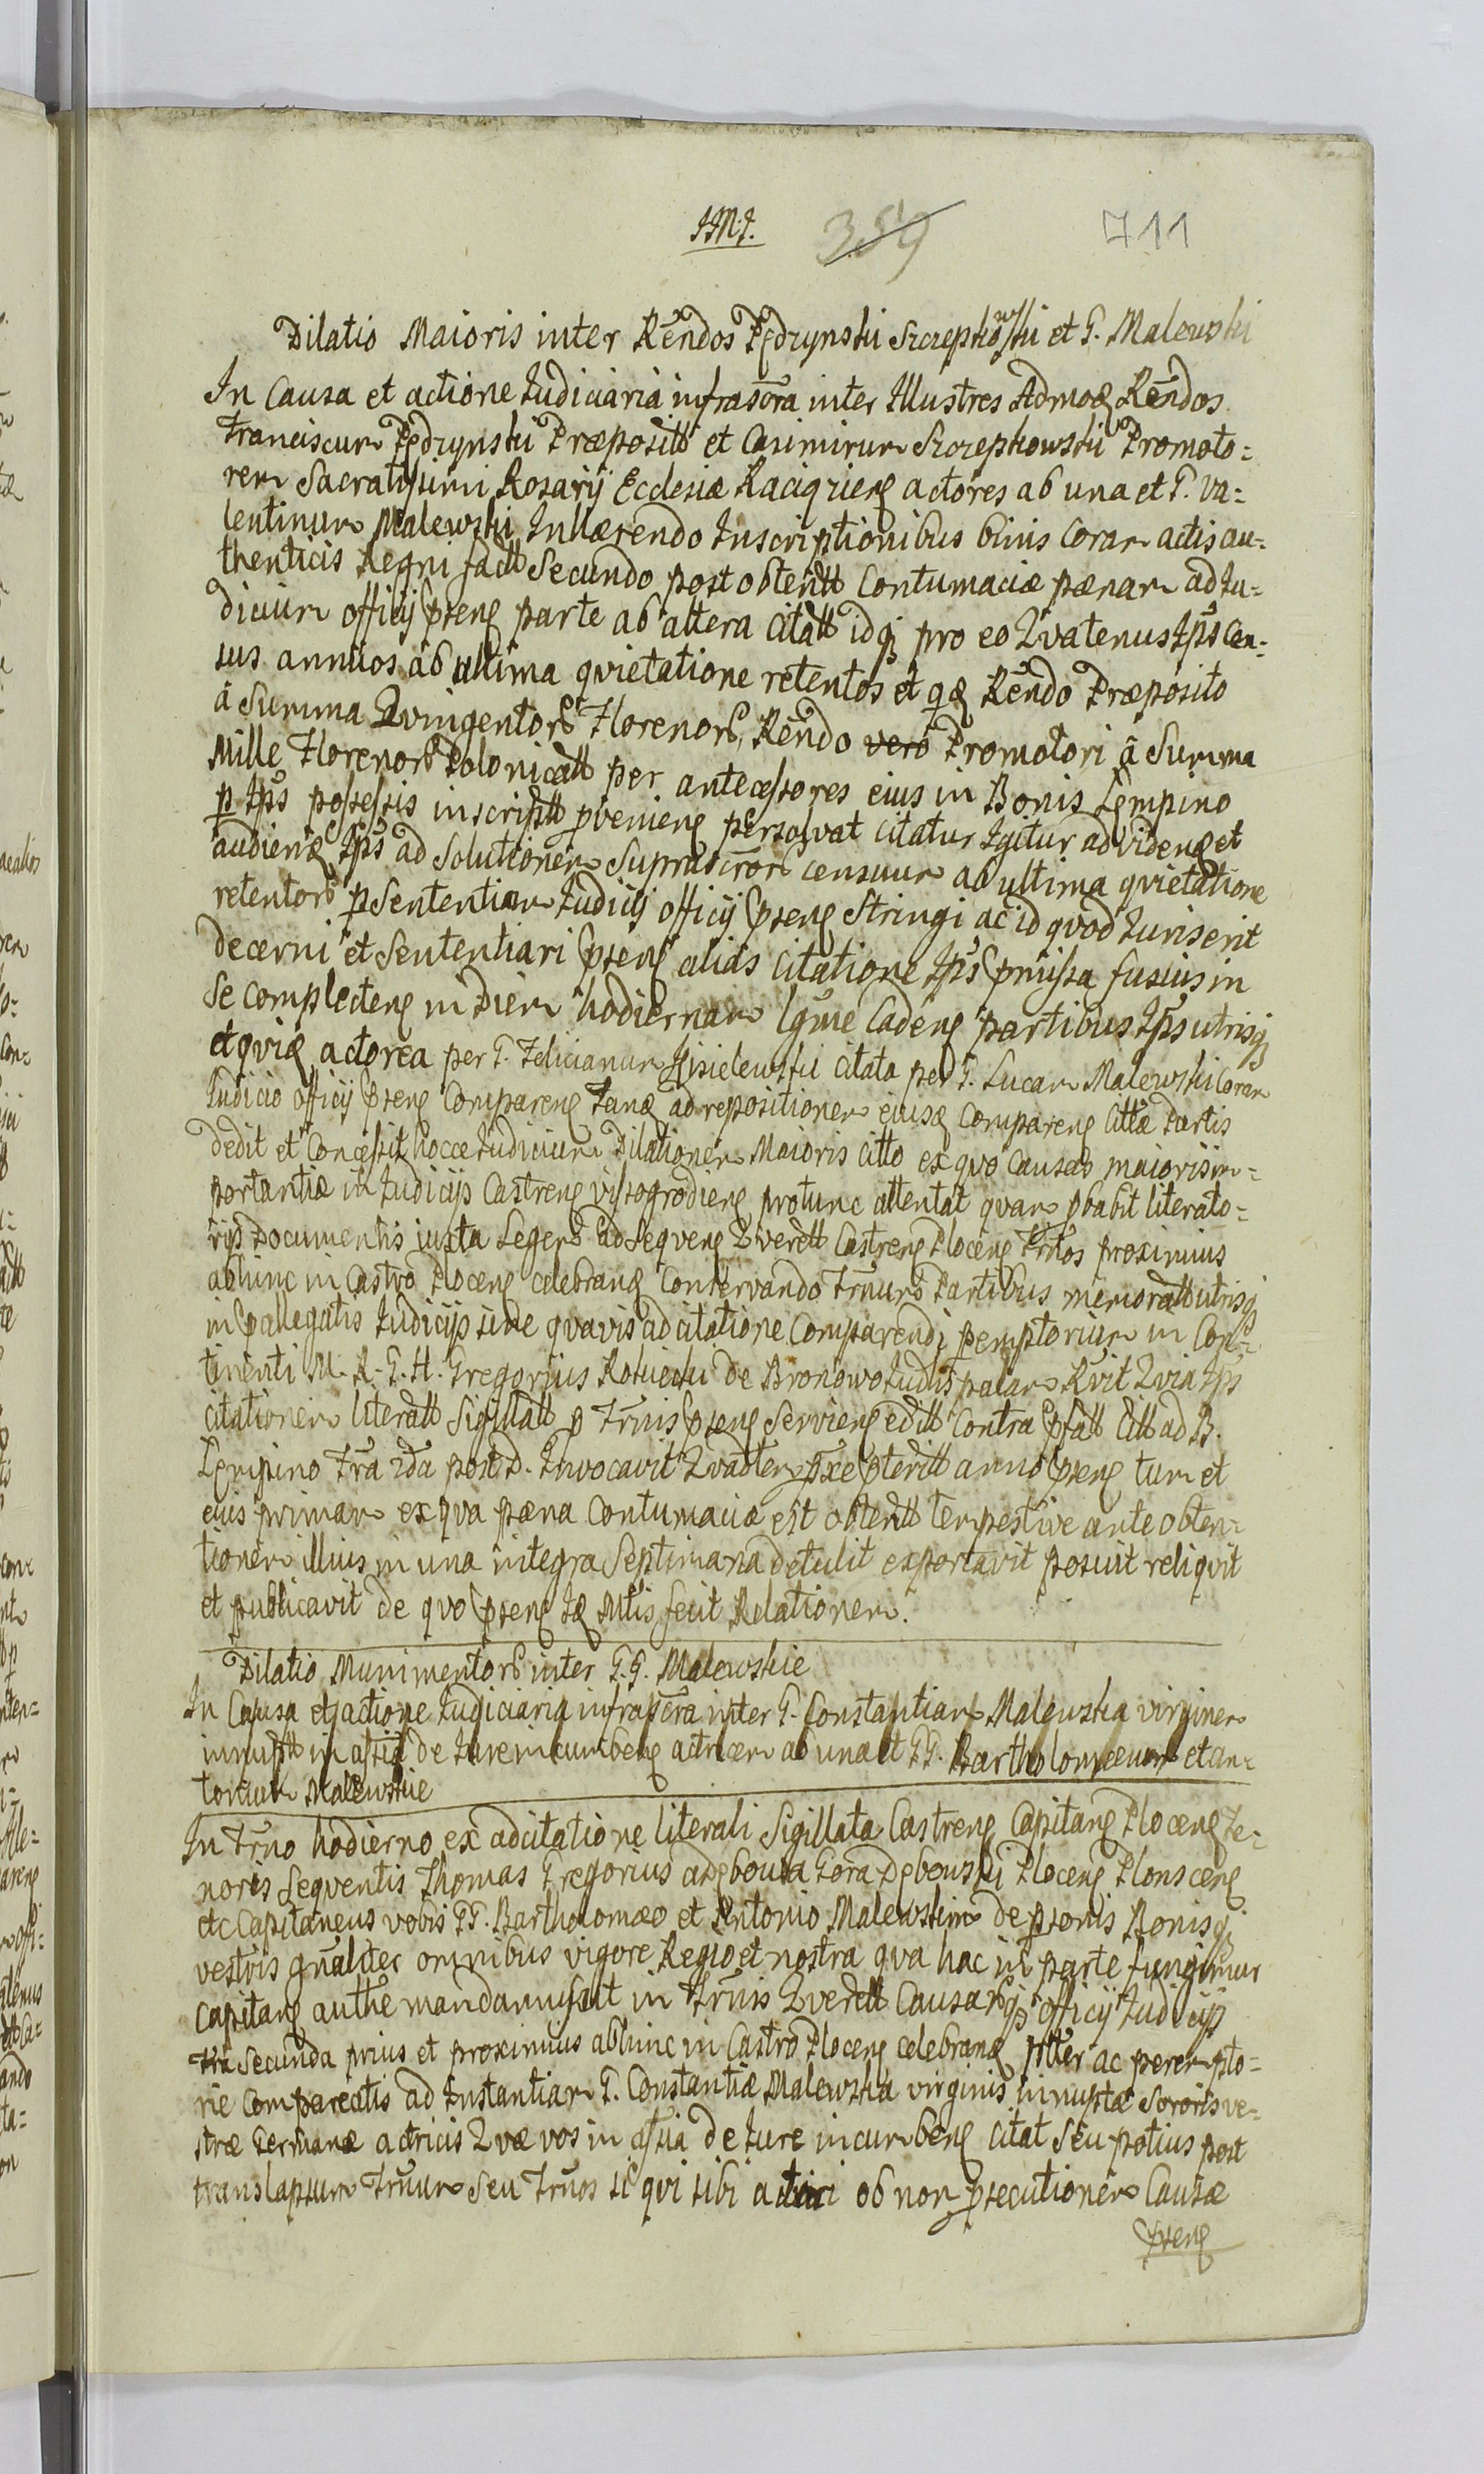 J.M.J. 359 711
Dilatio Maioris inter Rendos Pędzynski Szczepkowski et G. Malewski
In Causa et actione Judiciaria infrascra inter Illustres Admod Rendos
Franciscum Pędzynski Præposittt et Casimirum Szczepkowski Promoto=
rem Sacratissimi Rosarij Ecclesiæ Raciązien actores ab una et G. Va=
lentinum Malewski Inhærendo Inscriptionibus binis Coram actis au=
thenticis Regni factt Secundo post obtentt Contumaciæ pænam ad Ju=
dicium officij psens parte ab altera Citatt idq pro eo Qvatenus Ips Cen=
sus annuos ab ultima qvietatione retentos et qd Rendo Præposito
à Summa Qvingentor Florenor, Rendo vero Promotori à Summa
Mille Florenor Polonicatt per antecessores eius in Bonis Lempino
p Ips possessis inscriptt pveniens persolvat citatus Igitur ad videnđ et
audienđ Ips ad Solutionem Suprascror censuum ab ultima qvietatione
retentor p Sententiam Judicij officij psens Stringi ac id qvod Juris erit
decerni et Sententiari psens alias Citatione Ips pmissa fusius in
se complectens in diem hodiernam lgme Cadens partibus Ips utrisq
et qvid actorea per G. Felicianum Kisielewski citata per G. Lucam Malewski Coram
Judicio officij psens Comparens Tand ad repositionem eiusd Comparens Cittæ Partis
dedit et Concessit hocce Judicium Dilationem Maioris citto ex qvo Causas maioris im=
portantiæ in Judicijs Castrens Vissogrodiens protunc attentat qvam pbabit literato=
rijs Documentis iuxta Legem ad Seqvens Qverett Castrens Plocens Trnos proximius
abhinc in Castro Plocens celebrand Conservando Trnum Partibus memoratt utrisq
in pallegatis Judicijs sine qvavis adcitatione Comparendi pemptorium in Con=
tinenti M. R. G. H. Gregorius Rohiecki de Bronowo Judtis palam Rvit Qvia Ips
citationem literatt Sigillatt p Trnis psens Serviens editt Contra pfatt Citt ad B.
Lempino Fra 2da post D. Invocavit Qvadter pxe pteritt anno psens tum et
eius primam ex qva pæna Contumaciæ est obtentt tempestive ante obten=
tionem illius in una integra Septimana detulit exportavit posuit reliqvit
et publicavit de qvo psens Jd Mtis fecit Relationem.
Dilatio Munimentor inter G.G. Malewskie
In Causa et actione Judiciaria infrascra inter G. Constantiam Malewska virginem
innuptt in assia de Jure incumbens actricem ab una et GG. Bartholomæum et An=
tonium Malewskie
In Trno hodierno ex adcitatione literali Sigillata Castrens Capitans Plocens te=
noris Seqventis Thomas Gregorius a Dębowa Gora Dębowski Plocens Plonscens
etc Capitaneus vobis GG. Bartholomæo et Antonio Malewskim de psonis Bonisq
vestris gnaliter omnibus vigore Regio et nostra qva hac in parte fungimur
capitans autthe mandamus ut in Trnis Qverett Causarq officij Judicijs
Fra Secunda prius et proximius abhinc in Castro Plocens celebrand plter ac perempto=
rie Compareatis ad Instantiam G. Constantiæ Malewska virginis innuptæ Sororis ve=
stræ Germanæ actricis Qvæ vos in assia de Jure incumbens citat Seu potius post
translapsum Trnum Seu Trnos si qvi sibi actrici ob non psecutionem Causæ
psens